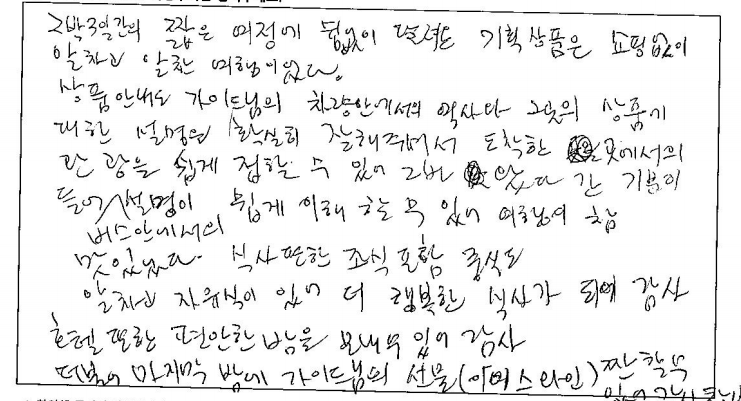 2박3일간의 짧은 여정에 틈없이 달려도 기획상품은 쇼핑없이
알차고 알찬 여행이었다.
상품안내도 가이드님의 차량안에서의 역사나 그곳의 상품에
대한 설명을 확실히 잘해주셔서 도착한 곳에서의
관광을 쉽게 접할 수 있어 2번 왔다 간 기분이
들어 설명이 쉽게 이해 할 수 있어 여행이 참
버스안에서의
맛있었다. 식사 또한 조식 포함 중식도
알차고 자유식이 있어 더 행복한 식사가 되어 감사
호텔 또한 편안한 밤을 보내수 있어 감사
더불어 마지막 밤에 가이드님의 선물(아이스와인) 짠 할수
있어 감사